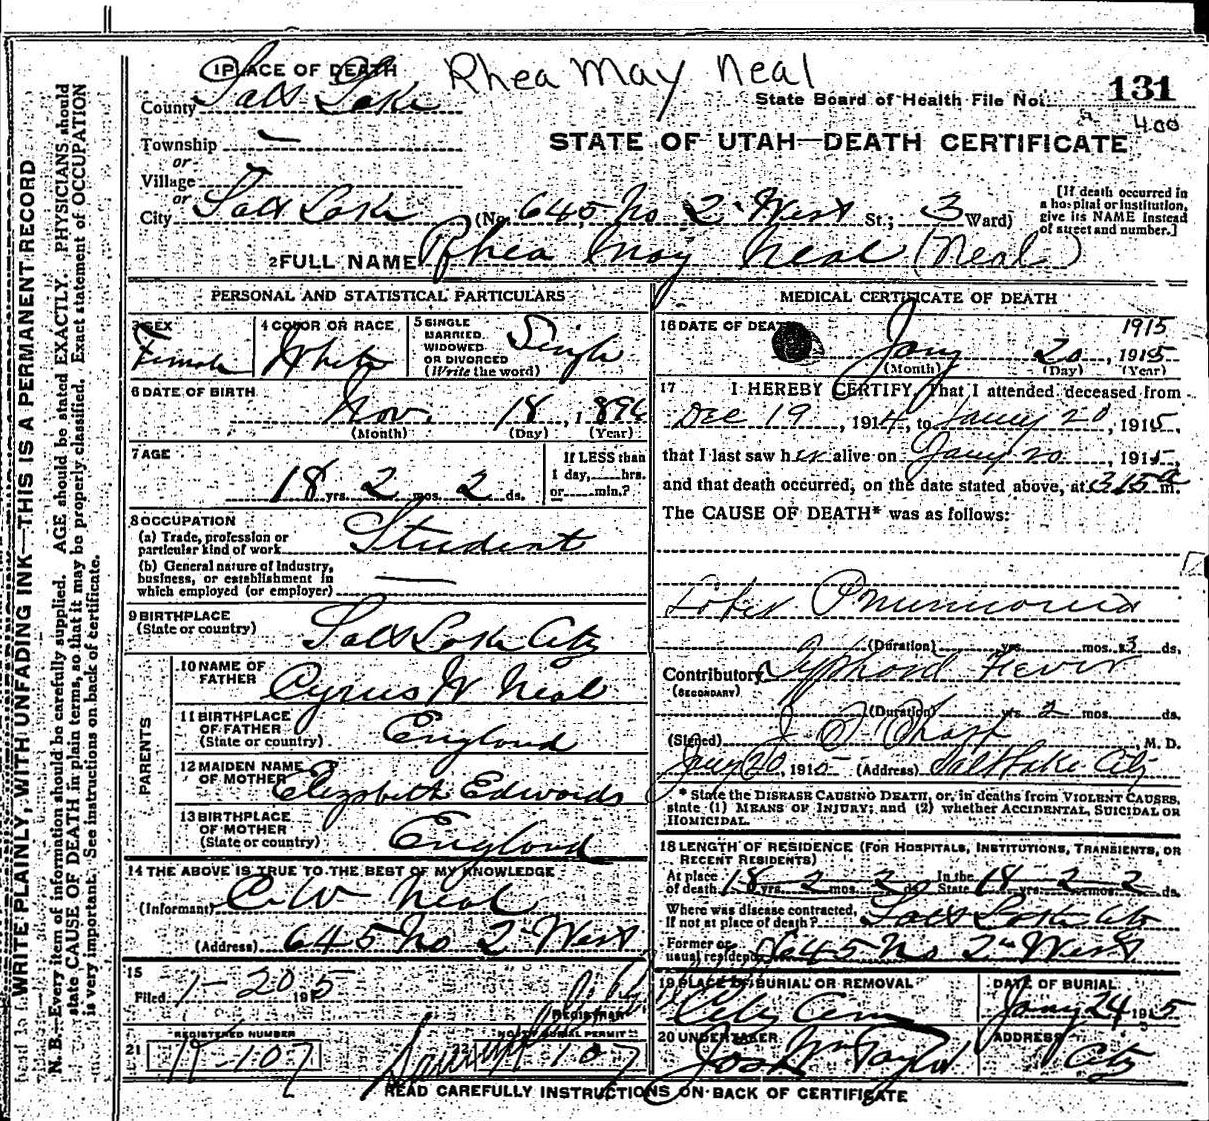 Rhea May Neal
1 PLACE OF DEATH
County Salt Lake
State Board of Health File No. 131
400
Township —
STATE OF UTAH—DEATH CERTIFICATE
or
Village
or
City Salt Lake (No. 645 No 2nd West St.; 3 Ward)
[If death occurred in a hospital or institution, give its NAME instead of street and number.]
2 FULL NAME Rhea May Neal (Neal)
PERSONAL AND STATISTICAL PARTICULARS
3 SEX Female
4 COLOR OR RACE White
5 SINGLE MARRIED, WIDOWED OR DIVORCED (Write the word) Single
6 DATE OF BIRTH
Nov. 18, 1896
(Month) (Day) (Year)
7 AGE
18 yrs. 2 mos. 2 ds.
If LESS than 1 day, hrs. or min.?
8 OCCUPATION
(a) Trade, profession or particular kind of work Student
(b) General nature of Industry, business, or establishment in which employed (or employer) —
9 BIRTHPLACE
(State or country) Salt Lake City
PARENTS
10 NAME OF FATHER Cyrus W Neal
11 BIRTHPLACE OF FATHER (State or country) England
12 MAIDEN NAME OF MOTHER Elizabeth Edwards
13 BIRTHPLACE OF MOTHER (State or country) England
14 THE ABOVE IS TRUE TO THE BEST OF MY KNOWLEDGE
(Informant) C. W. Neal
(Address) 645 No 2nd West
15
Filed 1-20 1915
REGISTRAR
REGISTERED NUMBER
21
107
BURIAL PERMIT
107
MEDICAL CERTIFICATE OF DEATH
16 DATE OF DEATH
1915
Jany 20, 1915
(Month) (Day) (Year)
17 I HEREBY CERTIFY, That I attended deceased from
Dec 19, 1914, to Jany 20, 1915,
that I last saw her alive on Jany 20, 1915
and that death occurred, on the date stated above, at 315 a m.
The CAUSE OF DEATH* was as follows:
Lober Pnumonia
(Duration) yrs. mos. 3 ds.
Contributory Typhoid Fever
(SECONDARY)
(Duration) yrs. 2 mos. ds.
(Signed) M. D.
Jany 20, 1915 (Address) Salt Lake City
* State the DISEASE CAUSING DEATH, or, in deaths from VIOLENT CAUSES, state (1) MEANS OF INJURY; and (2) whether ACCIDENTAL, SUICIDAL OR HOMICIDAL.
18 LENGTH OF RESIDENCE (FOR HOSPITALS, INSTITUTIONS, TRANSIENTS, OR RECENT RESIDENTS)
At place of death 18 yrs. 2 mos. 2 ds. In the State 18 yrs. 2 mos. 2 ds.
Where was disease contracted, if not at place of death? Salt Lake City
Former or usual residence 645 No 2nd West
19 PLACE OF BURIAL OR REMOVAL
City Cem
DATE OF BURIAL
Jany 24 1915
20 UNDERTAKER
Jos Wm Taylor
ADDRESS
City
READ CAREFULLY INSTRUCTIONS ON BACK OF CERTIFICATE
WRITE PLAINLY, WITH UNFADING INK—THIS IS A PERMANENT RECORD
N. B.—Every item of information should be carefully supplied. AGE should be stated EXACTLY. PHYSICIANS should
state CAUSE OF DEATH in plain terms, so that it may be properly classified. Exact statement of OCCUPATION
is very important. See instructions on back of certificate.